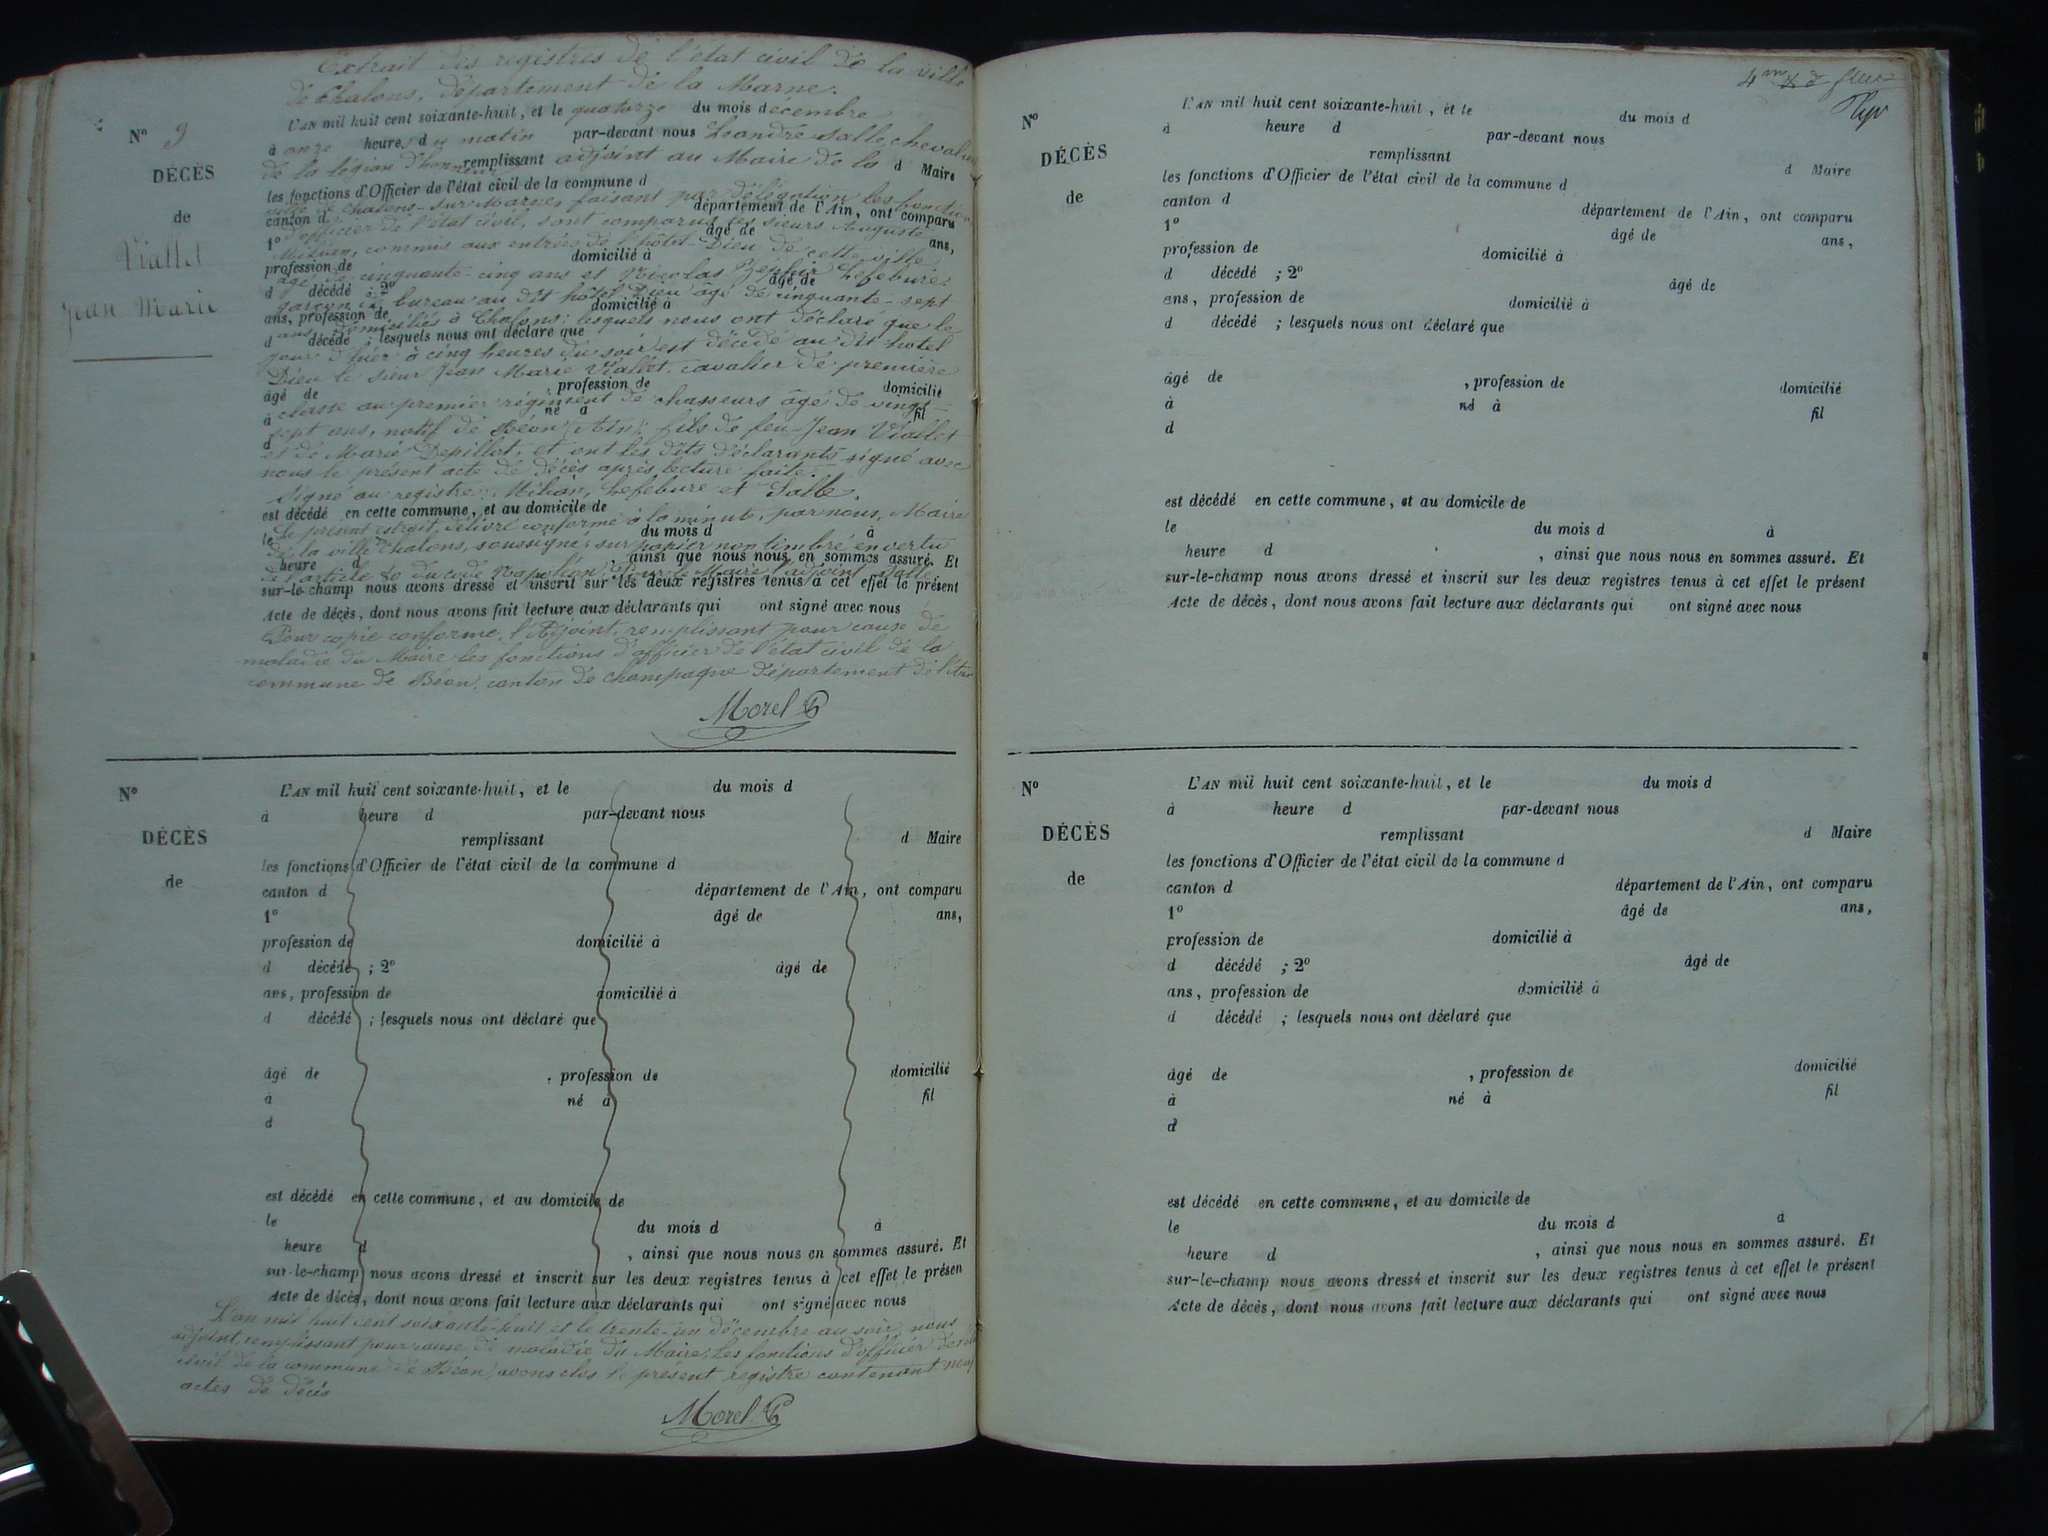 Extrait des registres de l'état civil de la ville
de Chalons, département de la Marne.
L'AN mil huit cent soixante-huit, et le quatorze du mois décembre
N° 9
à onze heures du matin par-devant nous Léandre Salle chevalier
de la légion d'honneur remplissant adjoint au Maire de la d Maire
DÉCÈS
les fonctions d'Officier de l'état civil de la commune d
ville de Chalons-sur-Marne, faisant par délégation les fonctions
de
canton d département de l'Ain, ont comparu
d'officier de l'état civil, sont comparus les sieurs Auguste
1° âgé de ans,
Viallet
commis aux entrées de l'hôtel-Dieu de cette ville
profession de domicilié à
âgé de cinquante-cinq ans et Nicolas Lefebure
d décédé ; 2° âgé de
Jean Marie
garçon de bureau au dit hôtel Dieu âgé de cinquante-sept
ans, profession de domicilié à
ans, domiciliés à Chalons; lesquels nous ont déclaré que le
d décédé ; lesquels nous ont déclaré que
jour d'hier à cinq heures du soir est décédé au dit hotel
Dieu le sieur Jean Marie Viallet, cavalier de première
âgé de , profession de domicilié
classe au premier régiment de chasseurs âgé de vingt-
à né à fil
sept ans, natif de Béon (Ain) fils de feu Jean Viallet
d
et de Marie Depillot, et ont les dits déclarants signé avec
nous le présent acte de décès après lecture faite.
Signé au registre: Lefebure et Salle.
est décédé en cette commune, et au domicile de
Le présent extrait délivré conforme à la minute, par nous, Maire
le du mois d à
de la ville Chalons, soussigné; sur papier non timbré en vertu
heure d , ainsi que nous nous en sommes assuré. Et
de l'article 80 du code Napoléon Pour le Maire l'adjoint Salle
sur-le-champ nous avons dressé et inscrit sur les deux registres tenus à cet effet le présent
Acte de décès, dont nous avons fait lecture aux déclarants qui ont signé avec nous
Pour copie conforme, l'Adjoint, remplissant pour cause de
maladie du Maire les fonctions d'officier de l'état civil de la
commune de Béon, canton de champagne département de l'Ain
Morel
N°
L'AN mil huit cent soixante-huit, et le du mois d
à heure d par-devant nous
DÉCÈS
remplissant d Maire
les fonctions d'Officier de l'état civil de la commune d
de
canton d département de l'Ain, ont comparu
1° âgé de ans,
profession de domicilié à
d décédé ; 2° âgé de
ans, profession de domicilié à
d décédé ; lesquels nous ont déclaré que
âgé de , profession de domicilié
à né à fil
d
est décédé en cette commune, et au domicile de
le du mois d à
heure d , ainsi que nous nous en sommes assuré. Et
sur-le-champ nous avons dressé et inscrit sur les deux registres tenus à cet effet le présen
Acte de décès, dont nous avons fait lecture aux déclarants qui ont signé avec nous
L'an mil huit cent soixante-huit et le trente-un décembre au soir, nous
adjoint, remplissant pour cause de maladie du Maire, les fonctions d'officier de
civil de la commune de Béon, avons clos le présent registre contenant neuf
actes de décès
Morel
4
N°
L'AN mil huit cent soixante-huit, et le du mois d
d heure d par-devant nous
DÉCÈS
remplissant d Maire
les fonctions d'Officier de l'état civil de la commune d
de
canton d département de l'Ain, ont comparu
1° âgé de ans,
profession de domicilié à
d décédé ; 2° âgé de
ans, profession de domicilié à
d décédé ; lesquels nous ont déclaré que
âgé de , profession de domicilié
à né à fil
d
est décédé en cette commune, et au domicile de
le du mois d à
heure d , ainsi que nous nous en sommes assuré. Et
sur-le-champ nous avons dressé et inscrit sur les deux registres tenus à cet effet le présent
Acte de décès, dont nous avons fait lecture aux déclarants qui ont signé avec nous
N°
L'AN mil huit cent soixante-huit, et le du mois d
à heure d par-devant nous
DÉCÈS
remplissant d Maire
les fonctions d'Officier de l'état civil de la commune d
de
canton d département de l'Ain, ont comparu
1° âgé de ans,
profession de domicilié à
d décédé ; 2° âgé de
ans, profession de domicilié à
d décédé ; lesquels nous ont déclaré que
âgé de , profession de domicilié
à né à fil
d
est décédé en cette commune, et au domicile de
le du mois d à
heure d , ainsi que nous nous en sommes assuré. Et
sur-le-champ nous avons dressé et inscrit sur les deux registres tenus à cet effet le présent
Acte de décès, dont nous avons fait lecture aux déclarants qui ont signé avec nous